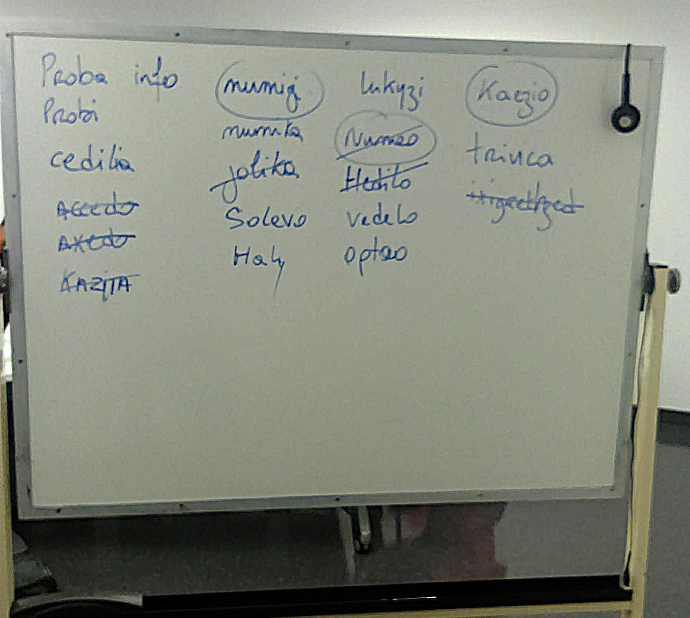 Proba info
Probi
cedilia
Accedo
Axedo
KAZITA
numigi
numita
jolika
Solevo
Haly
lukyzi
Numeo
Hedilo
vedelo
opteo
Kaezio
trinca